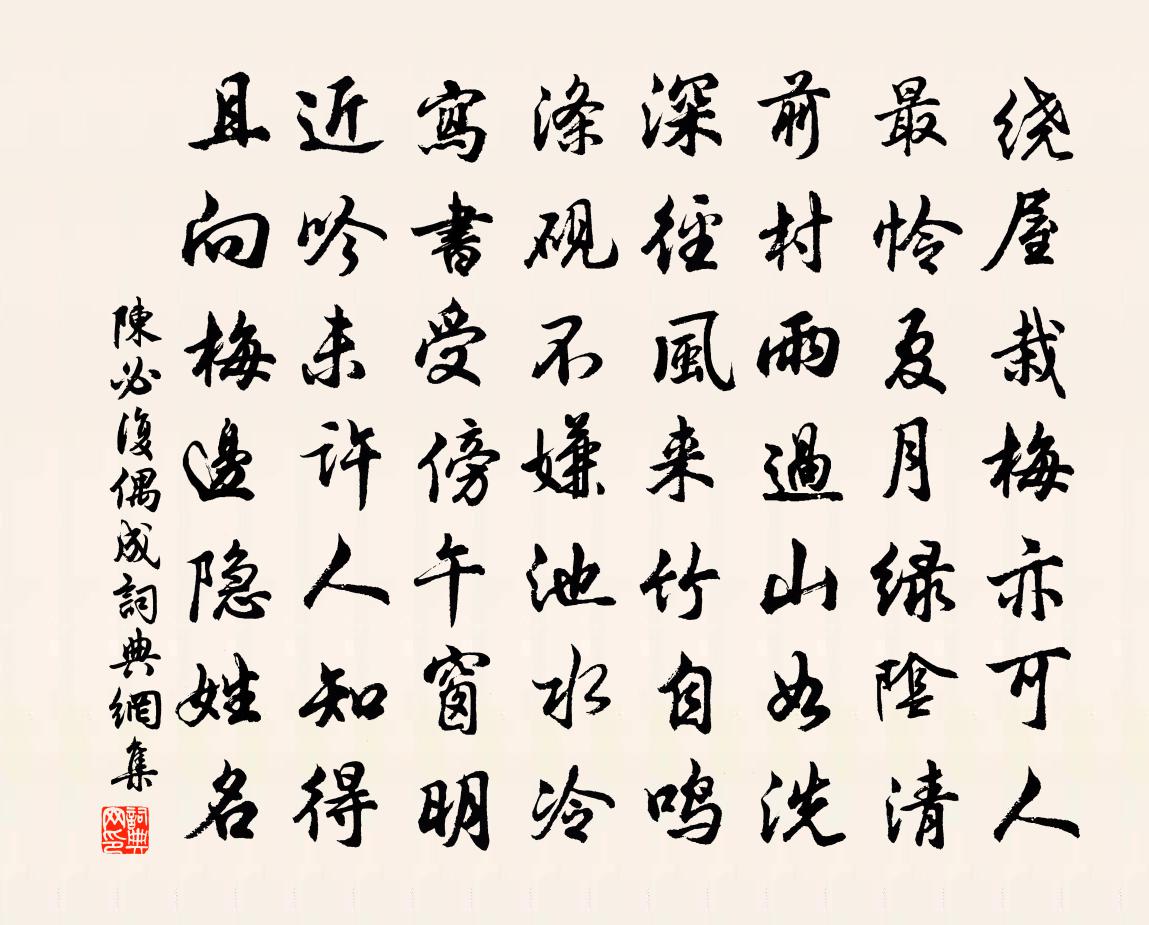 绕屋栽梅亦可人
最怜夏月绿陰清
前村雨過山如洗
深徑風来竹自鸣
滌硯不嫌池水冷
寫書受傍午窗明
近吟未許人知得
且向梅邊隐姓名
陳必復偶成詞典網集
詞典網印